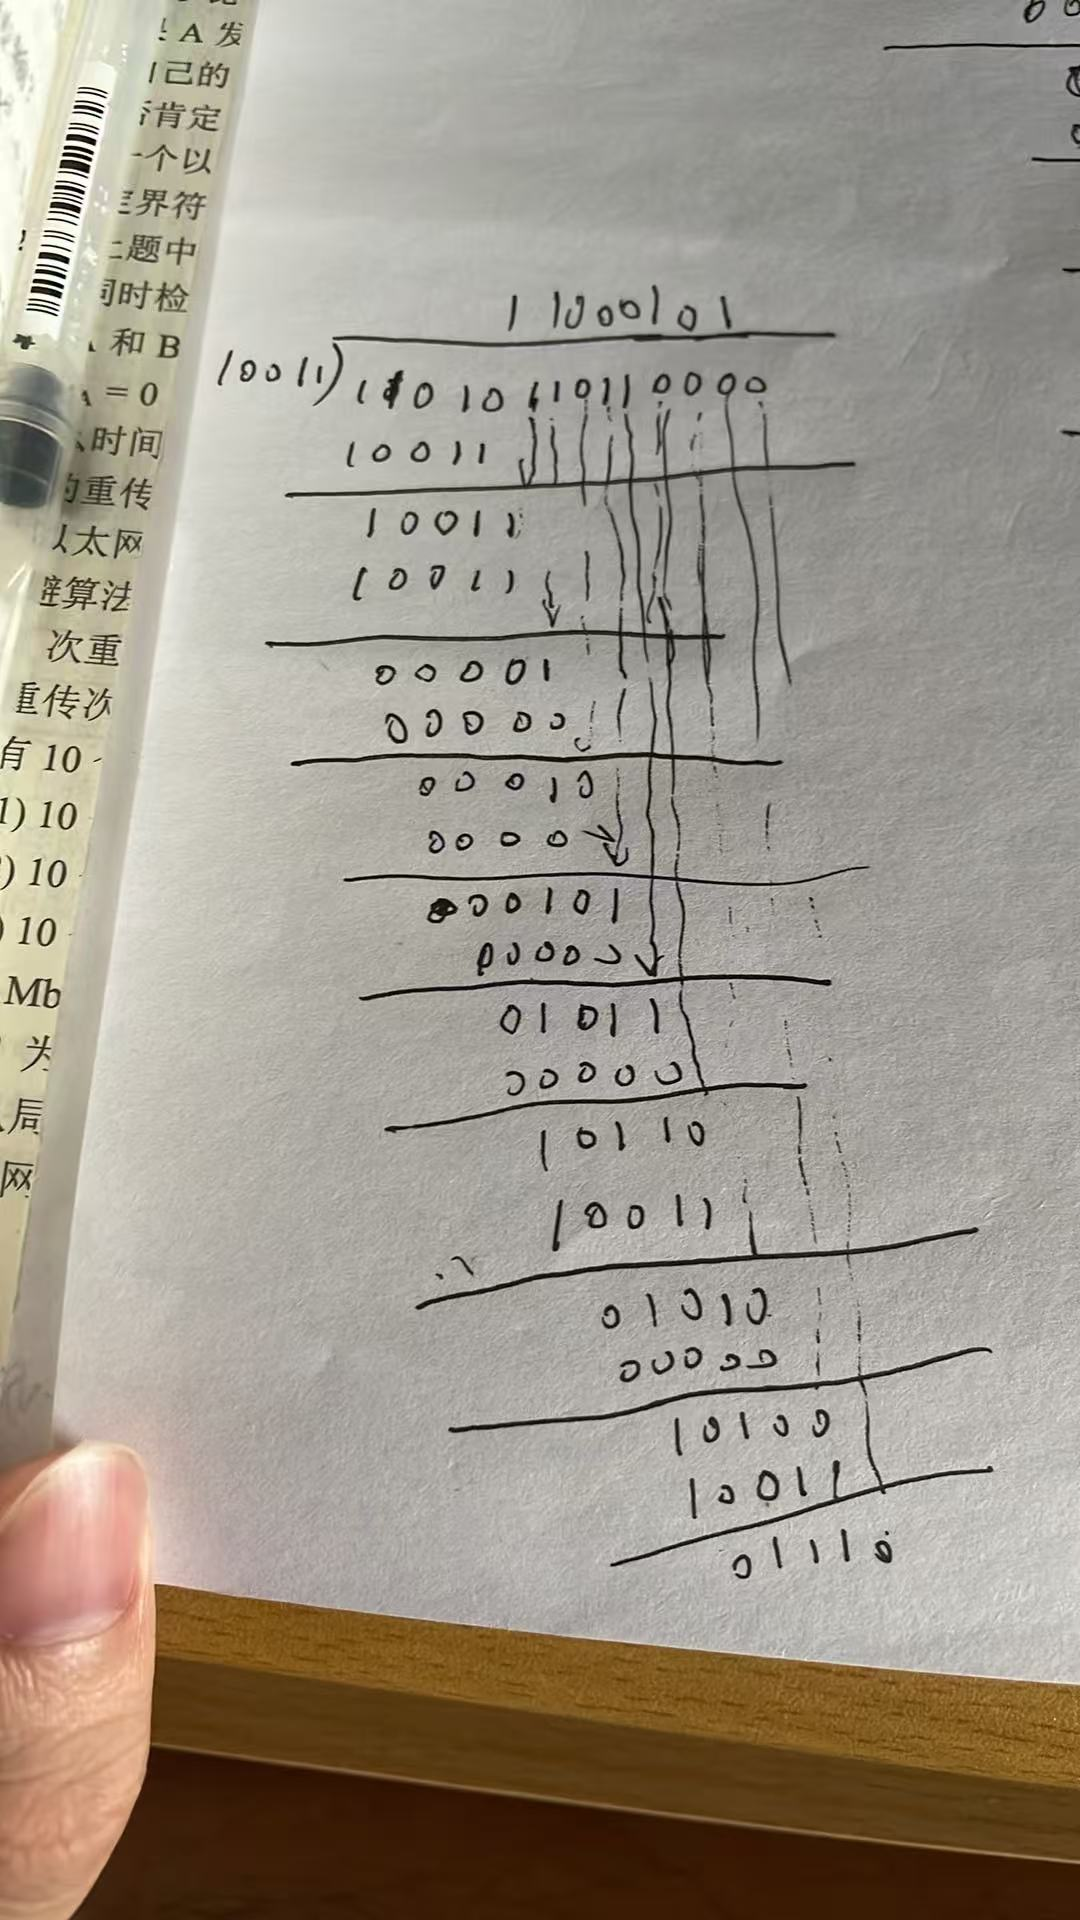 A 发
自己的
否肯定
一个以
定界符
上题中
同时检
和 B
A = 0
时间
的重传
以太网
避算法
次重
重传次
有 10
1) 10
) 10
) 10
Mb
为
局
网
11000101
10011)11010110110000
10011
10011
10011
00001
00000
00010
0000
000101
00000
01011
00000
10110
10011
01010
00000
10100
10011
01110